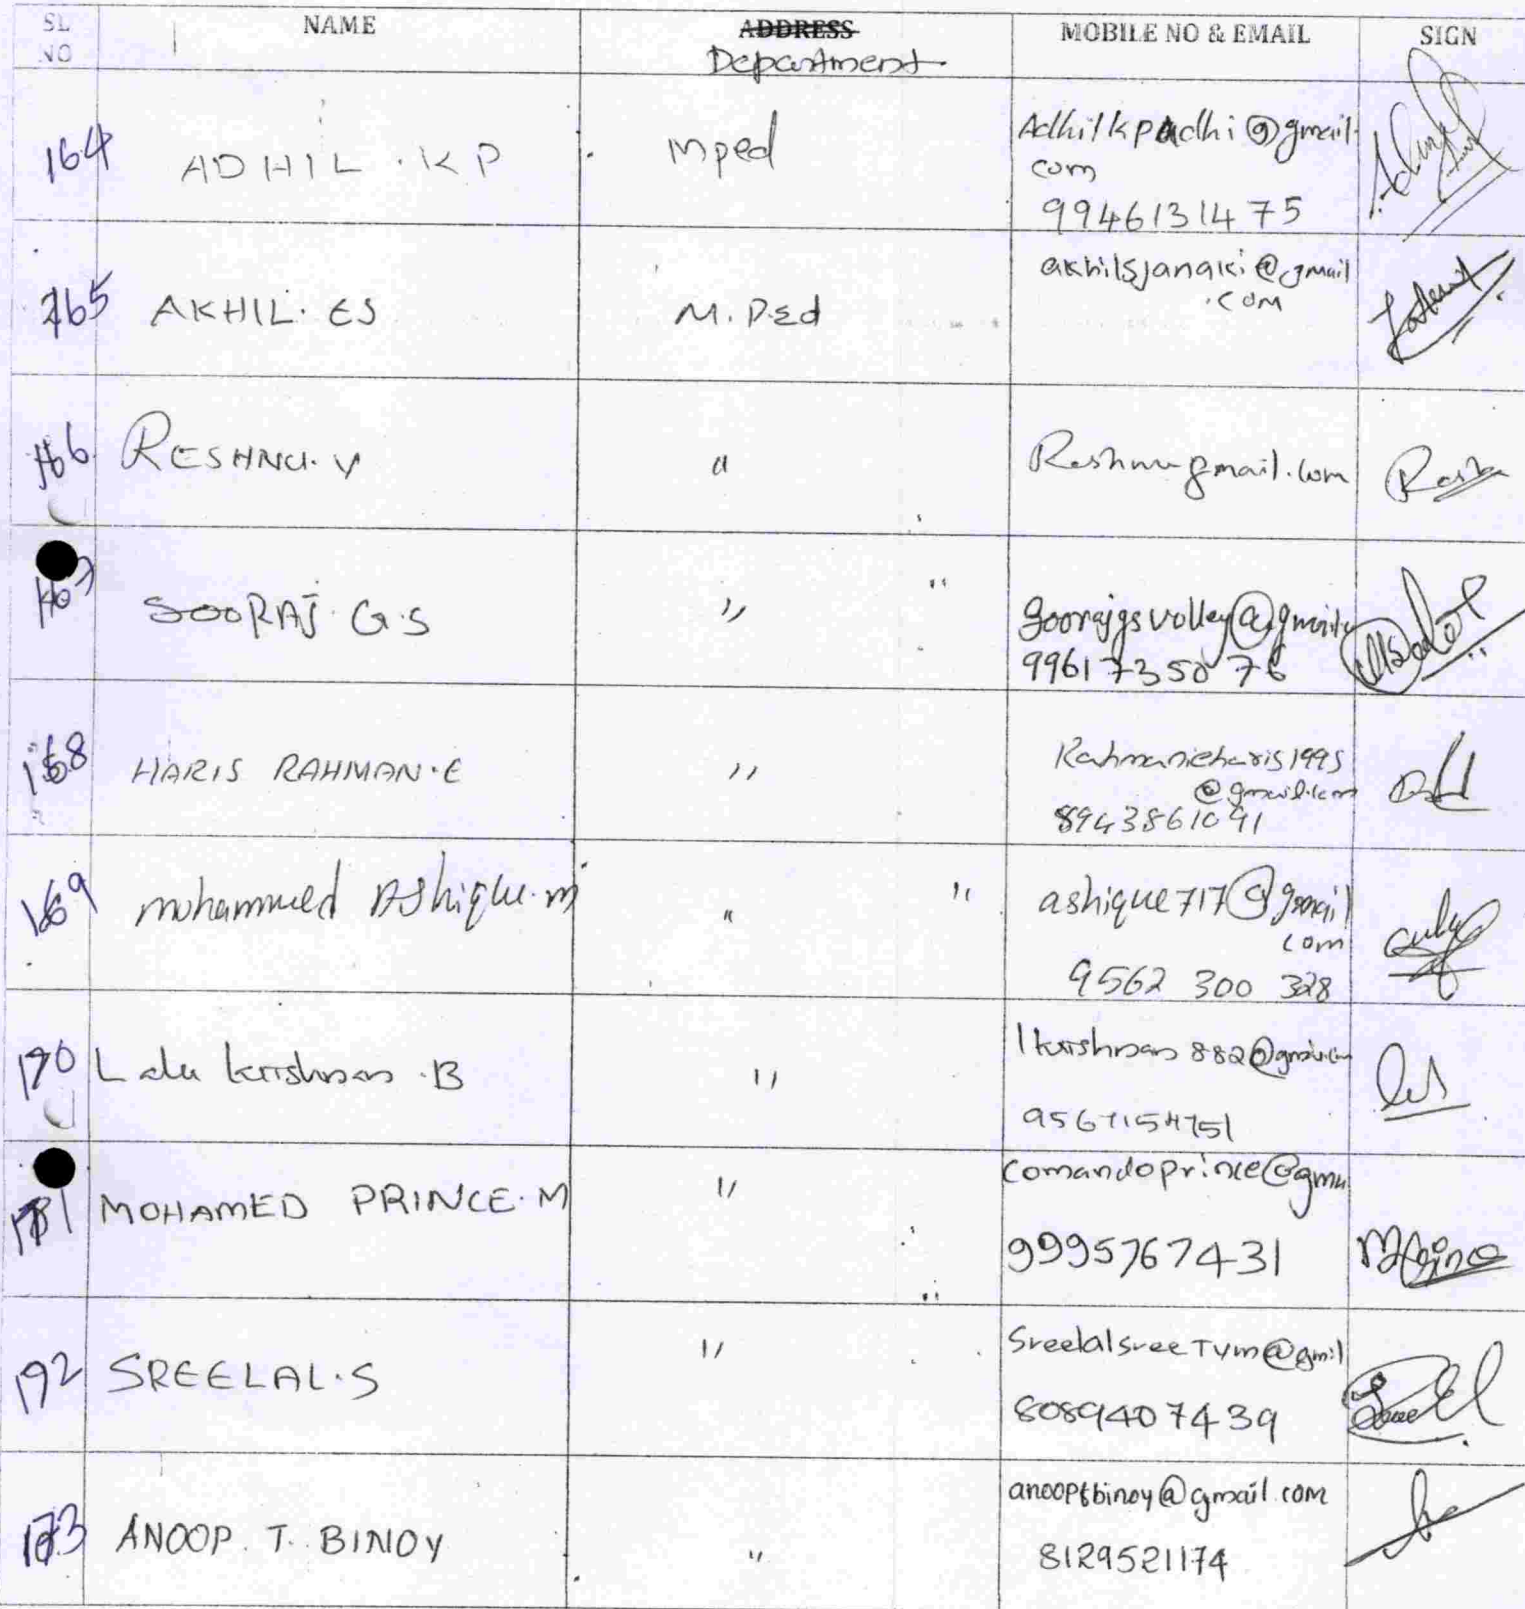 SL NO NAME ADDRESS MOBILE NO & EMAIL SIGN
Department
164 ADHIL . K P Mped Adhilkpadhi@gmail.
com
9946131475
165 AKHIL. ES M. P.Ed akhilsjanaki@gmail
.com
166 RESHNU. V " Reshnu gmail.com
167 SOORAJ. G.S " soorajgsvolley@gmail
9961735076
168 HARIS RAHMAN.E " Rahmanieharis1995
@gmail.com
8943861091
169 mohammed Ashique.m " ashique717@gmail
com
9562 300 328
170 Lalu krishnan .B " lkrishnan882@gmail.com
9567154751
171 MOHAMED PRINCE.M " comandoprince@gmai
9995767431
172 SREELAL.S " SreelalsreeTvm@gmil
8089407439
173 ANOOP. T. BINOY " anooptbinoy@gmail.com
8129521174